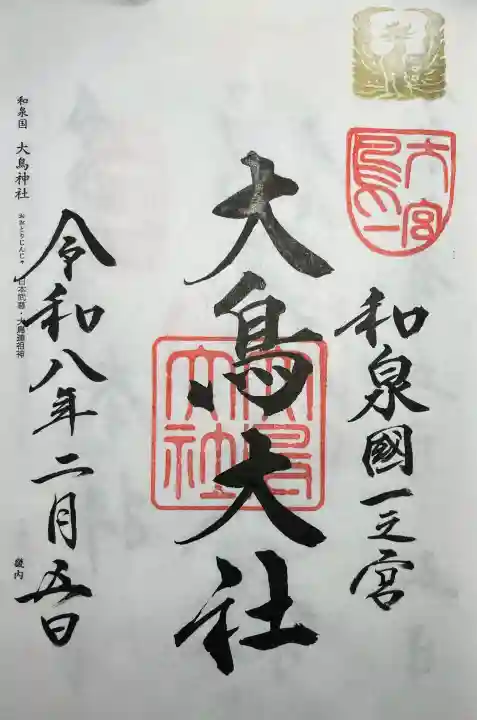 和泉國一之宮
大鳥大社
令和八年二月五日
大鳥一宮
大鳥大社
和泉国 大鳥神社 おおとりじんじゃ 日本武尊・大鳥連祖神
畿内